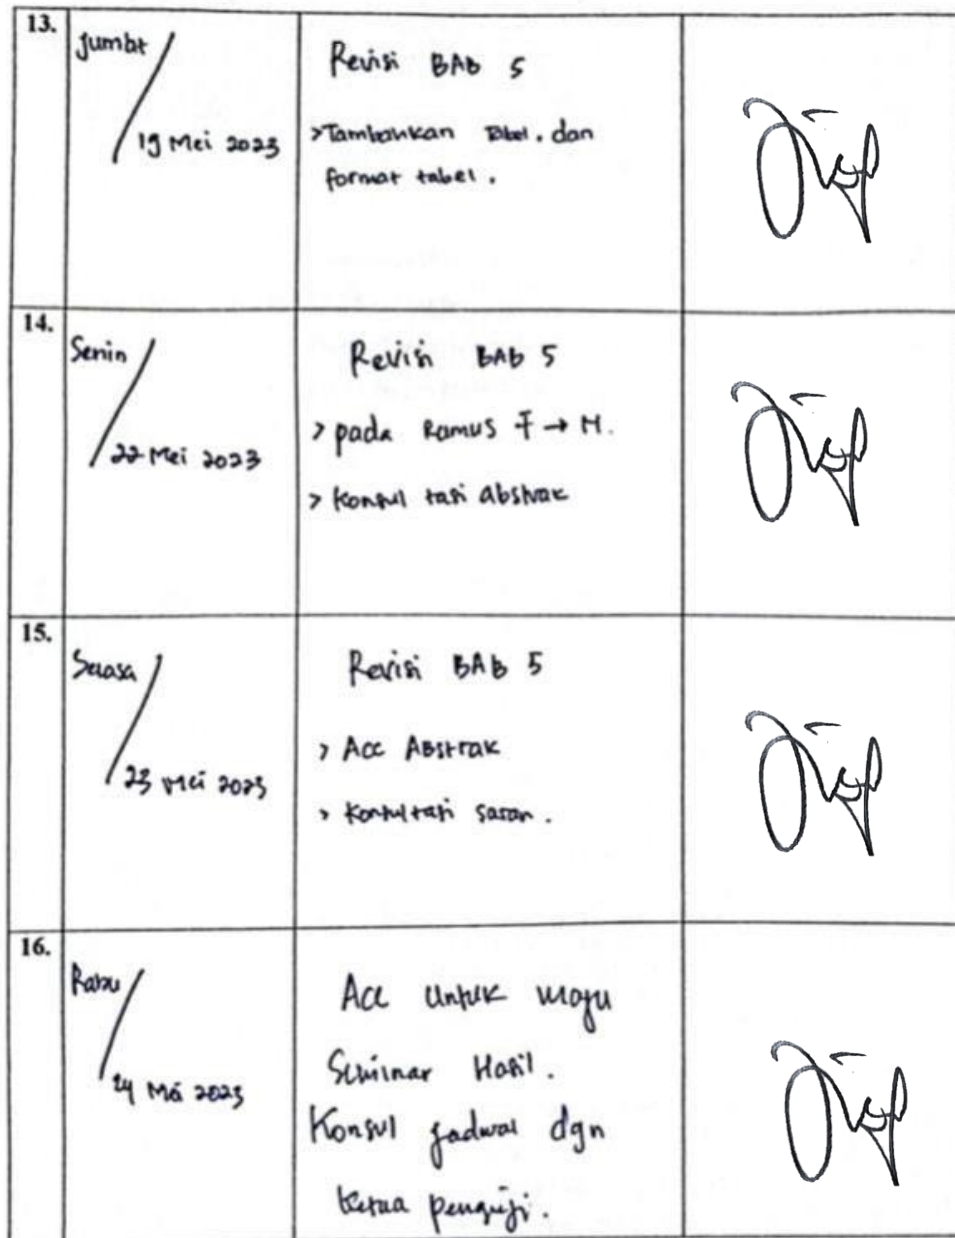 13.
Jumat
19 Mei 2023
Revisi BAB 5
>Tambahkan Tabel. dan
format tabel.
14.
Senin
22 Mei 2023
Revisi BAB 5
> pada Rumus F → M.
> Konsul tasi abstrak
15.
Selasa
23 Mei 2023
Revisi BAB 5
> Acc Abstrak
> Konsultasi saran.
16.
Rabu
24 Mei 2023
Acc untuk maju
Seminar Hasil.
Konsul jadwal dgn
Ketua penguji.